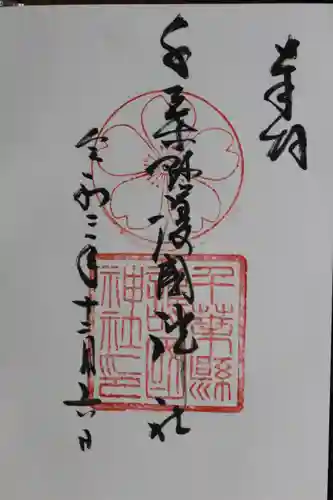 奉拝
千葉縣護國神社
令和二年十二月二六日
千葉縣
護國
神社印